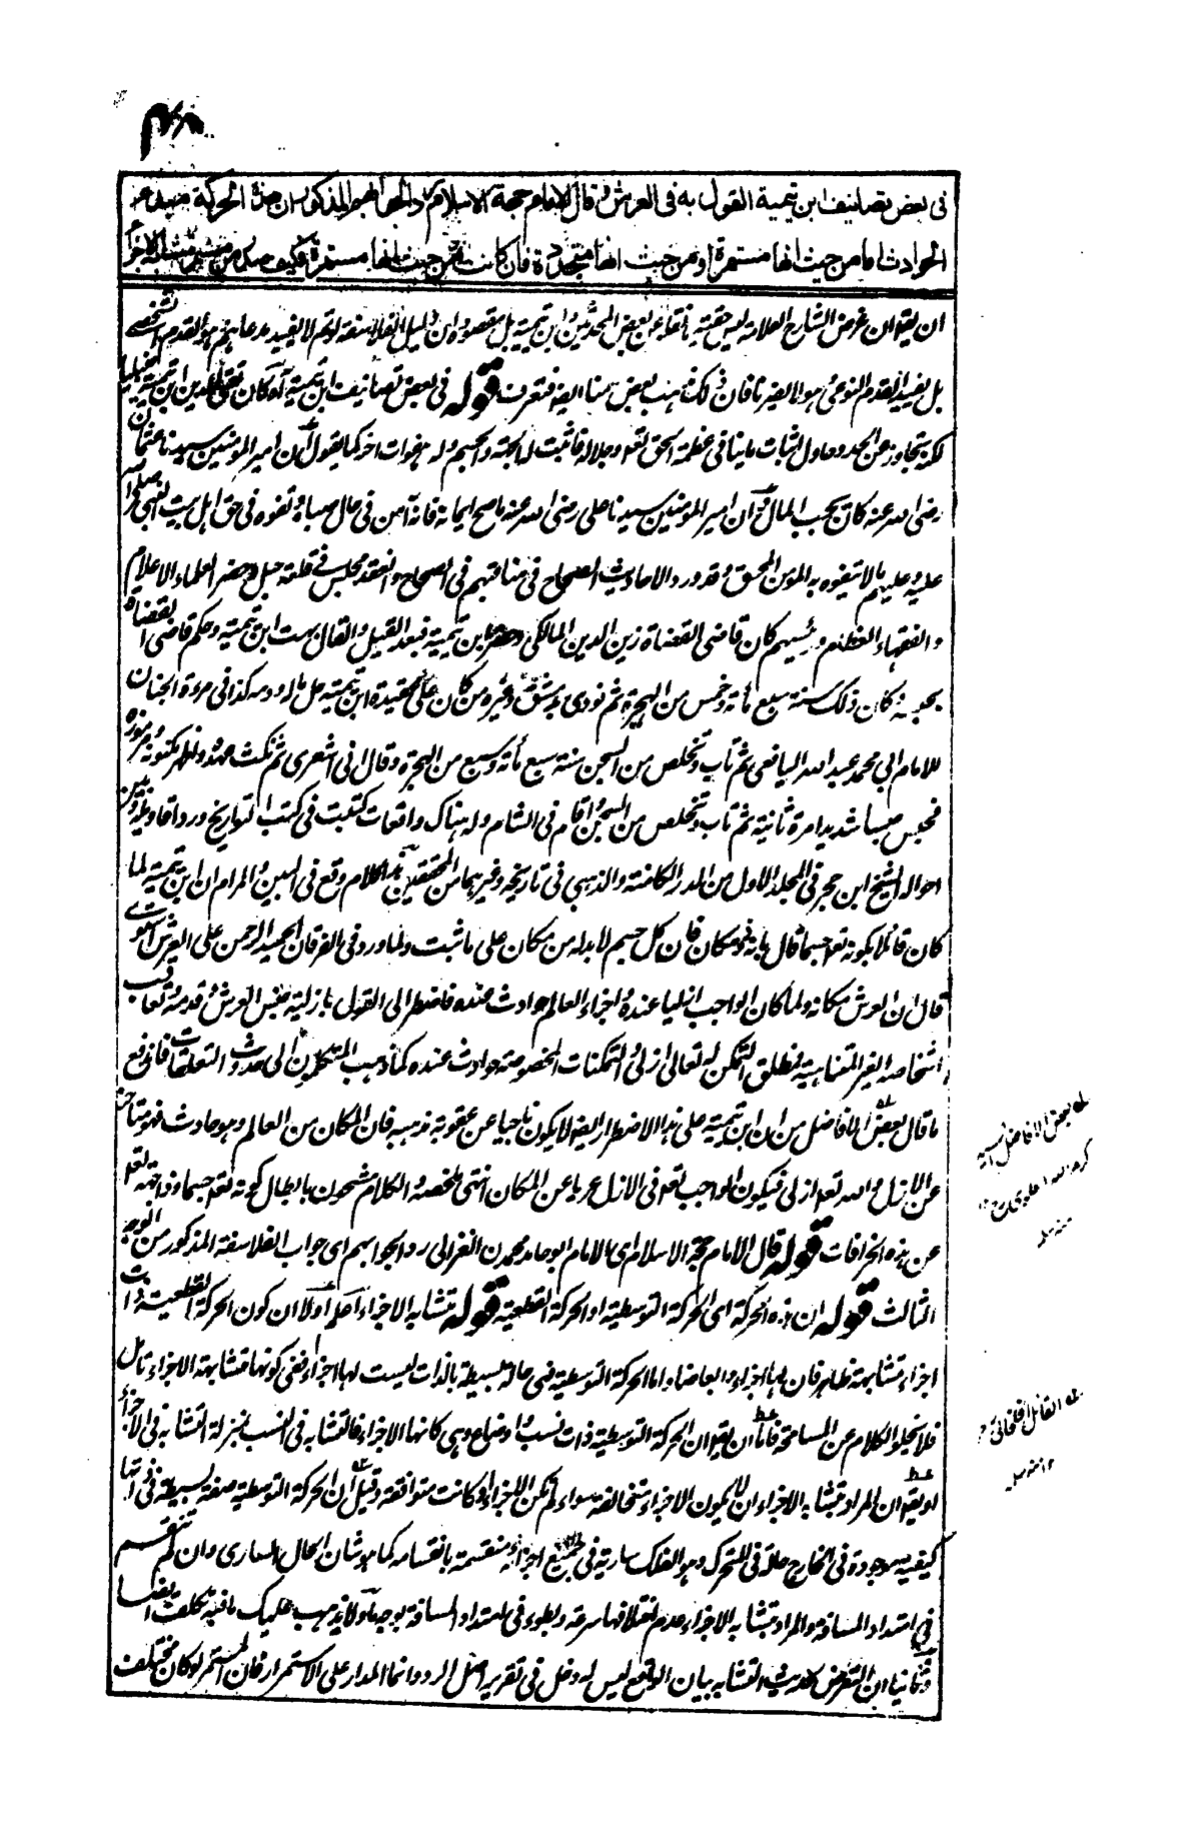 في بعض تصانيف ابن تيمية القول به في العرش وقال الامام حجة الاسلام رد الجوابهم المذكور ان هذه الحركة مبدء
الحوادث اما من حيث انها مستمرة او من حيث انها متجددة فان كانت من حيث انها مستمرة فكيف صدر من متشابه الاجزاء
ان يقو ان غرض الشارح العلامة ليس حقية ما نقله عن بعض المحدثين وابن تيمية بل مقصوده ان دليل الفلاسفة لو تم لا يفيد مدعاهم وهو القدم الشخصي
بل يفيد القدم النوعي وهو لا يضرنا فان ذلك مذهب بعض منا ايضا فتعرف قوله في بعض تصانيف ابن تيمية آه كان تقي الدين ابن تيمية حنبليا
لكنه تجاوز عن الحد وحاول اثبات ما ينافي عظمة الحق تعالى وجلاله فاثبت له الجهة والجسم وله هفوات اخر كما يقول ان امير المؤمنين سيدنا عثمان
رضي الله عنه كان يحب المال وان امير المؤمنين سيدنا علي رضي الله عنه ما صح ايمانه فانه آمن في حال صباه وتفوه في حق اهل بيت النبي صلى الله
عليه وعليهم ما لا يتفوه به المؤمن المحق وقد ورد الاحاديث الصحاح في مناقبهم في الصحاح وانعقد مجلس في قلعة جبل وحضر العلماء الاعلام
والفقهاء العظام ورئيسهم كان قاضي القضاة زين الدين المالكي وحضر ابن تيمية فبعد القيل والقال بهت ابن تيمية وحكم قاضي القضاة
بحبسه وكان ذلك سنة سبع مائة وخمس من الهجرة ثم نودي بدمشق وغيره من كان على عقيدة ابن تيمية حل ماله ودمه كذا في مرءة الجنان
للامام ابي محمد عبد الله اليافعي ثم تاب وتخلص من السجن سنة سبع مائة وسبع من الهجرة وقال اني اشعري ثم نكث عهده واظهر مكنونه ومرموزه
فحبس حبسا شديدا مرة ثانية ثم تاب وتخلص من السجن واقام في الشام وله هناك واقعات كتبت في كتب التواريخ ورد اقاويله وبين
احواله الشيخ ابن حجر في المجلد الاول من الدرر الكامنة والذهبي في تاريخه وغيرهما من المحققين هذا كلام وقع في البين والمرام ان ابن تيمية لما
كان قائلا بكونه تعالى جسما قال بانه ذو مكان فان كل جسم لا بد له من مكان على ما ثبت ولما ورد في الفرقان الحميد الرحمن على العرش استوى
قال ان العرش مكانه ولما كان الواجب ازليا عنده واجزاء العالم حوادث عنده فاضطر الى القول بازلية جنس العرش وقدمه وتعاقب
اشخاصه الغير المتناهية فمطلق التمكن له تعالى ازلي والتمكنات المخصوصة حوادث عنده كما ذهب المتكلمون الى حدوث التعلقات فاندفع
ما قال بعض الافاضل من ان ابن تيمية على هذا الاضطرار ايضا لا يكون ناجيا عن عقوبة مذهبه فان المكان من العالم وهو حادث فهو متاخر
عن الازل والله تعالى ازلي فيكون الواجب تعالى في الازل عريا عن المكان انتهى ملخصه والكلام مشحون بابطال كونه تعالى جسما وذا جهة
عن هذه الخرافات قوله قال الامام حجة الاسلام اي الامام ابو حامد محمد ن الغزالي رد الجوابهم اي جواب الفلاسفة المذكور من الوجه
الثالث قوله ان هذه الحركة اي الحركة التوسطية او الحركة القطعية قوله متشابه الاجزاء اولا ان كون الحركة القطعية ذات
اجزاء متشابهة ظاهر فان لها اجزاء وابعاضا واما الحركة التوسطية فهي حالة بسيطة بالذات ليست لها اجزاء ففي كونها متشابهة الاجزاء تامل
فلا يخلو الكلام عن المسامحة فاما ان يقو ان الحركة التوسطية ذات نسب واوضاع وهي كانها الاجزاء فالتشابه في النسب بمنزلة التشابه في الاجزاء
او يقو ان المراد بتشابه الاجزاء ان لا يكون الاجزاء متخالفة سواء لم تكن الاجزاء او كانت متوافقة وقيل ان الحركة التوسطية صفة بسيطة في ذاتها
كيفية موجودة في الخارج حالة في المتحرك وهو الفلك سارية في جميع اجزائه منقسمة بانقسامه كما هو شان الحال الساري وان لم تنقسم
في امتداد المسافة والمراد بتشابه الاجزاء عدم اختلافها سرعة وبطوء في امتداد المسافة بوجه ما ولا يذهب عليك ما فيه من تكلف
وثانيا ان التعرض لحديث التشابه بيان الواقع ليس له دخل في تقرير اصل الرد وانما المدار على الاستمرار فان المستمر لو كان مختلف
له بعض الافاضل